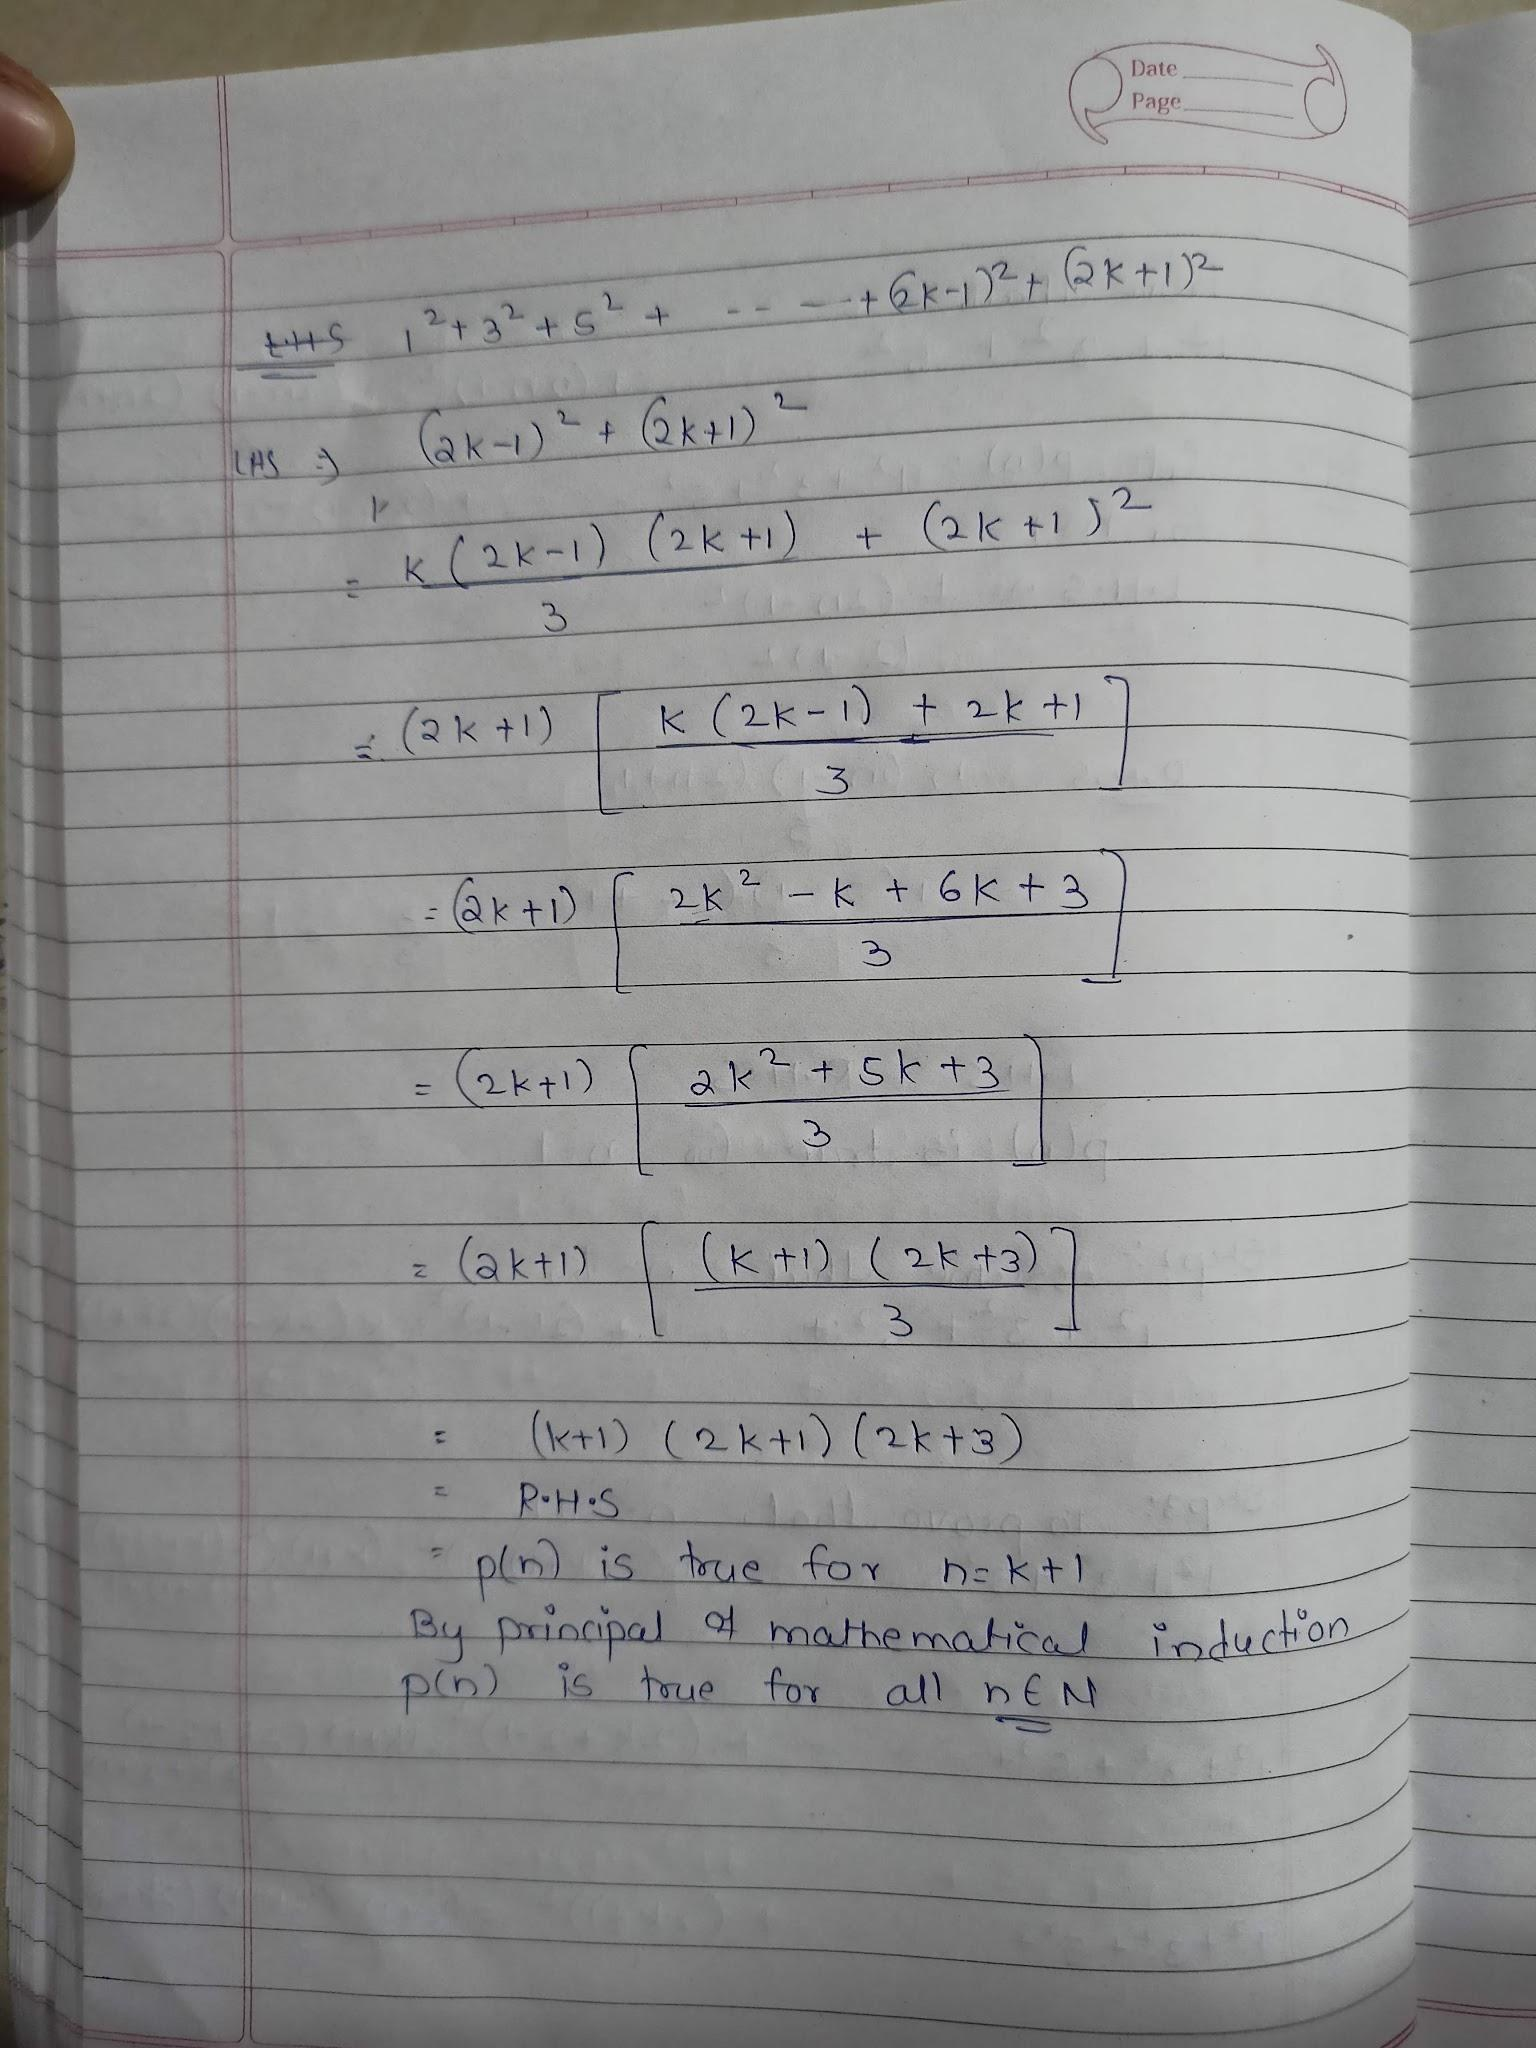 Date
Page
LHS 1² + 3² + 5² + -- -- + (2k-1)² + (2k+1)²
LHS ⇒ (2k-1)² + (2k+1)²
= k(2k-1) (2k+1) / 3 + (2k+1)²
= (2k+1) [ k(2k-1) + 2k+1 / 3 ]
= (2k+1) [ 2k² - k + 6k + 3 / 3 ]
= (2k+1) [ 2k² + 5k + 3 / 3 ]
= (2k+1) [ (k+1) (2k+3) / 3 ]
= (k+1) (2k+1) (2k+3)
= R.H.S
= p(n) is true for n = k+1
By principal of mathematical induction
p(n) is true for all n ∈ N